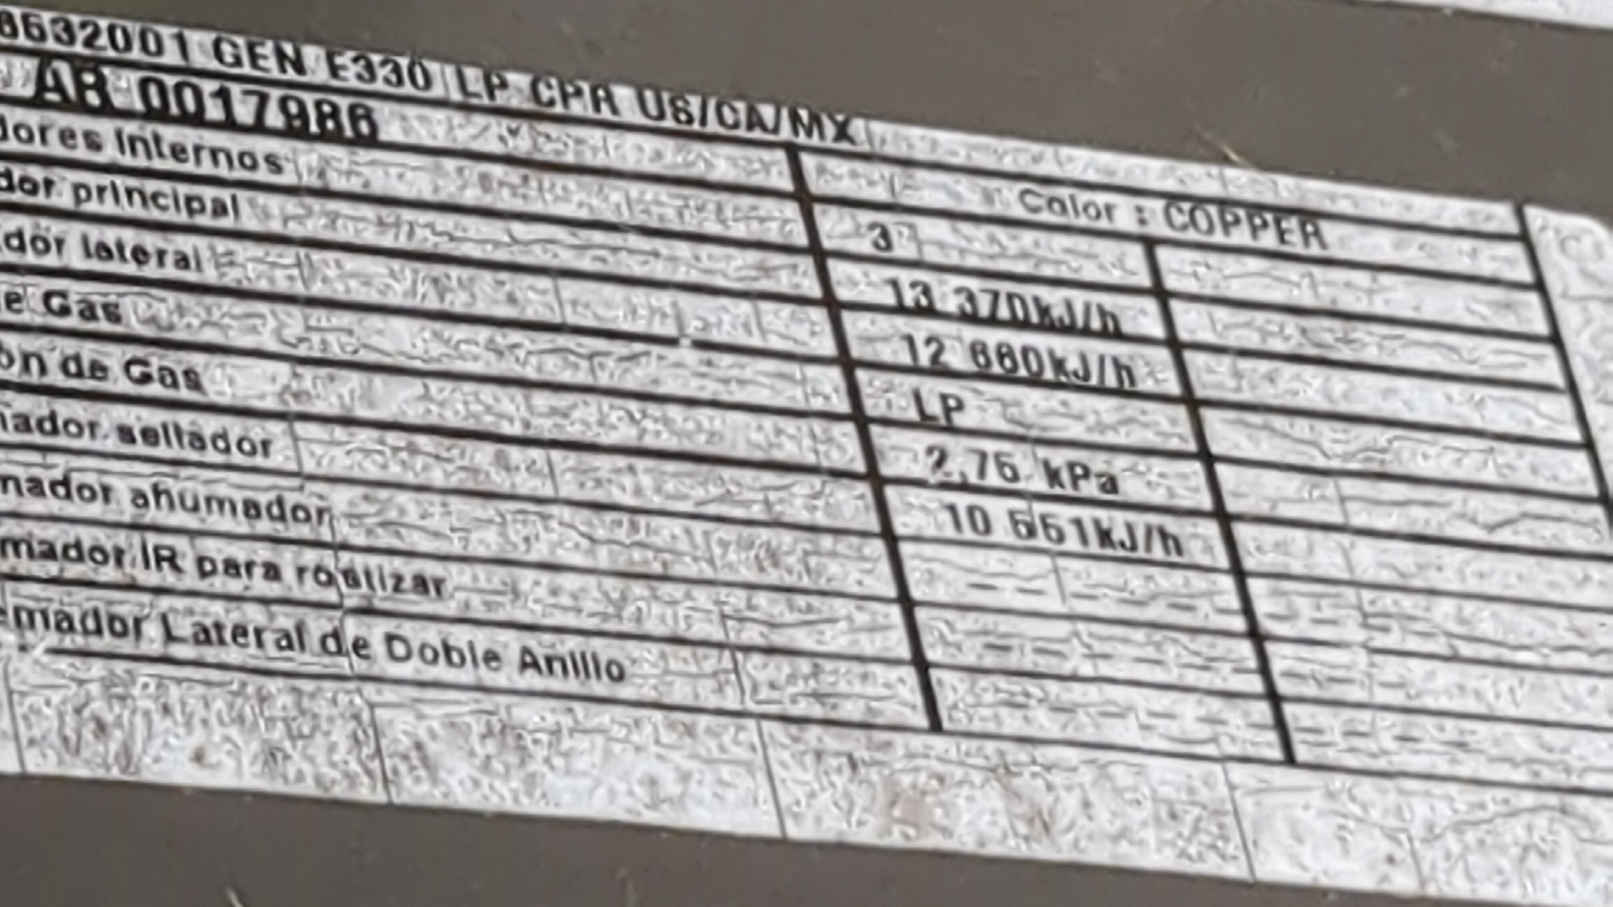 8632001 GEN E330 LP CPR US/CA/MX
AB 0017986
Color : COPPER
dores Internos 3
dor principal 13 370kJ/h
dor lateral 12 660kJ/h
e Gas LP
ón de Gas 2,75 kPa
ador sellador 10 551kJ/h
mador ahumador ---
mador IR para rostizar ---
emador Lateral de Doble Anillo ---